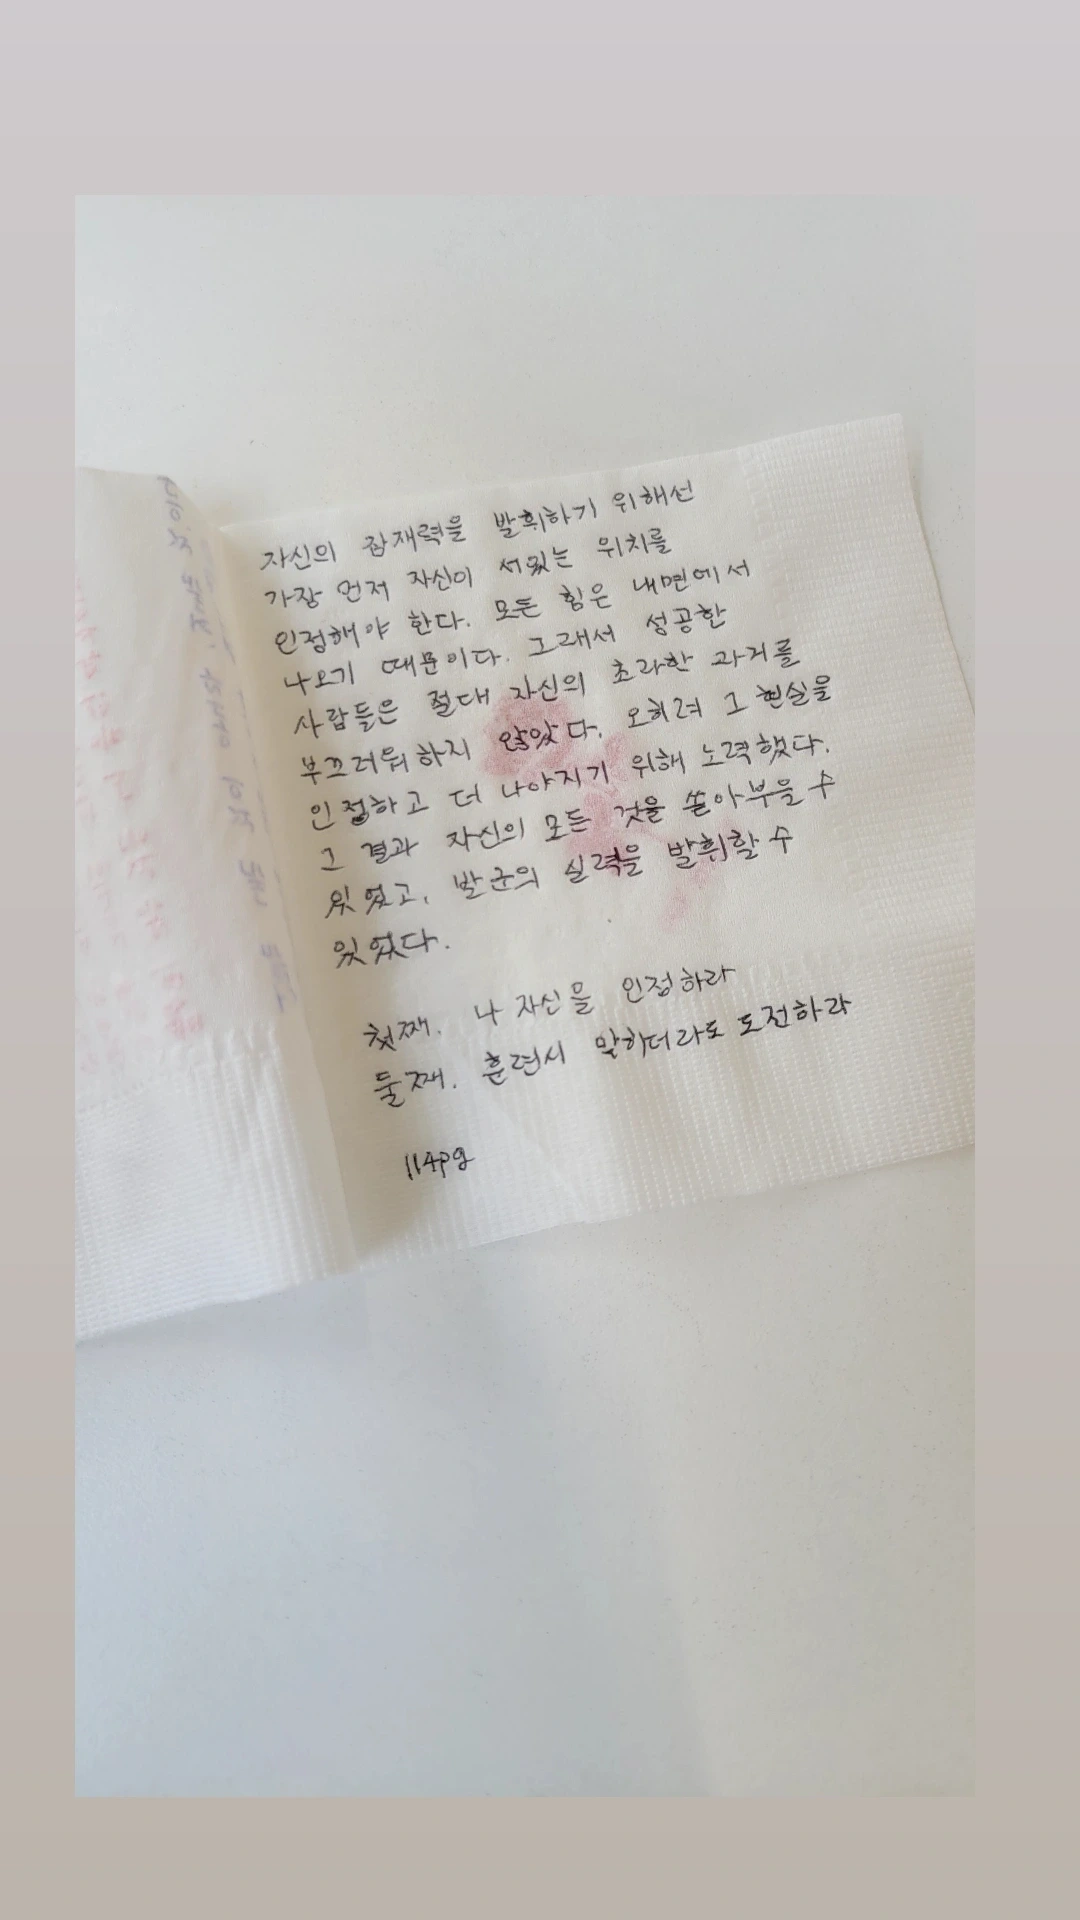 자신의 잠재력을 발휘하기 위해선
가장 먼저 자신이 서있는 위치를
인정해야 한다. 모든 힘은 내면에서
나오기 때문이다. 그래서 성공한
사람들은 절대 자신의 초라한 과거를
부끄러워하지 않았다. 오히려 그 현실을
인정하고 더 나아지기 위해 노력했다.
그 결과 자신의 모든 것을 쏟아부을 수
있었고, 발군의 실력을 발휘할 수
있었다.
첫째. 나 자신을 인정하라
둘째. 훈련시 망하더라도 도전하라
114pg